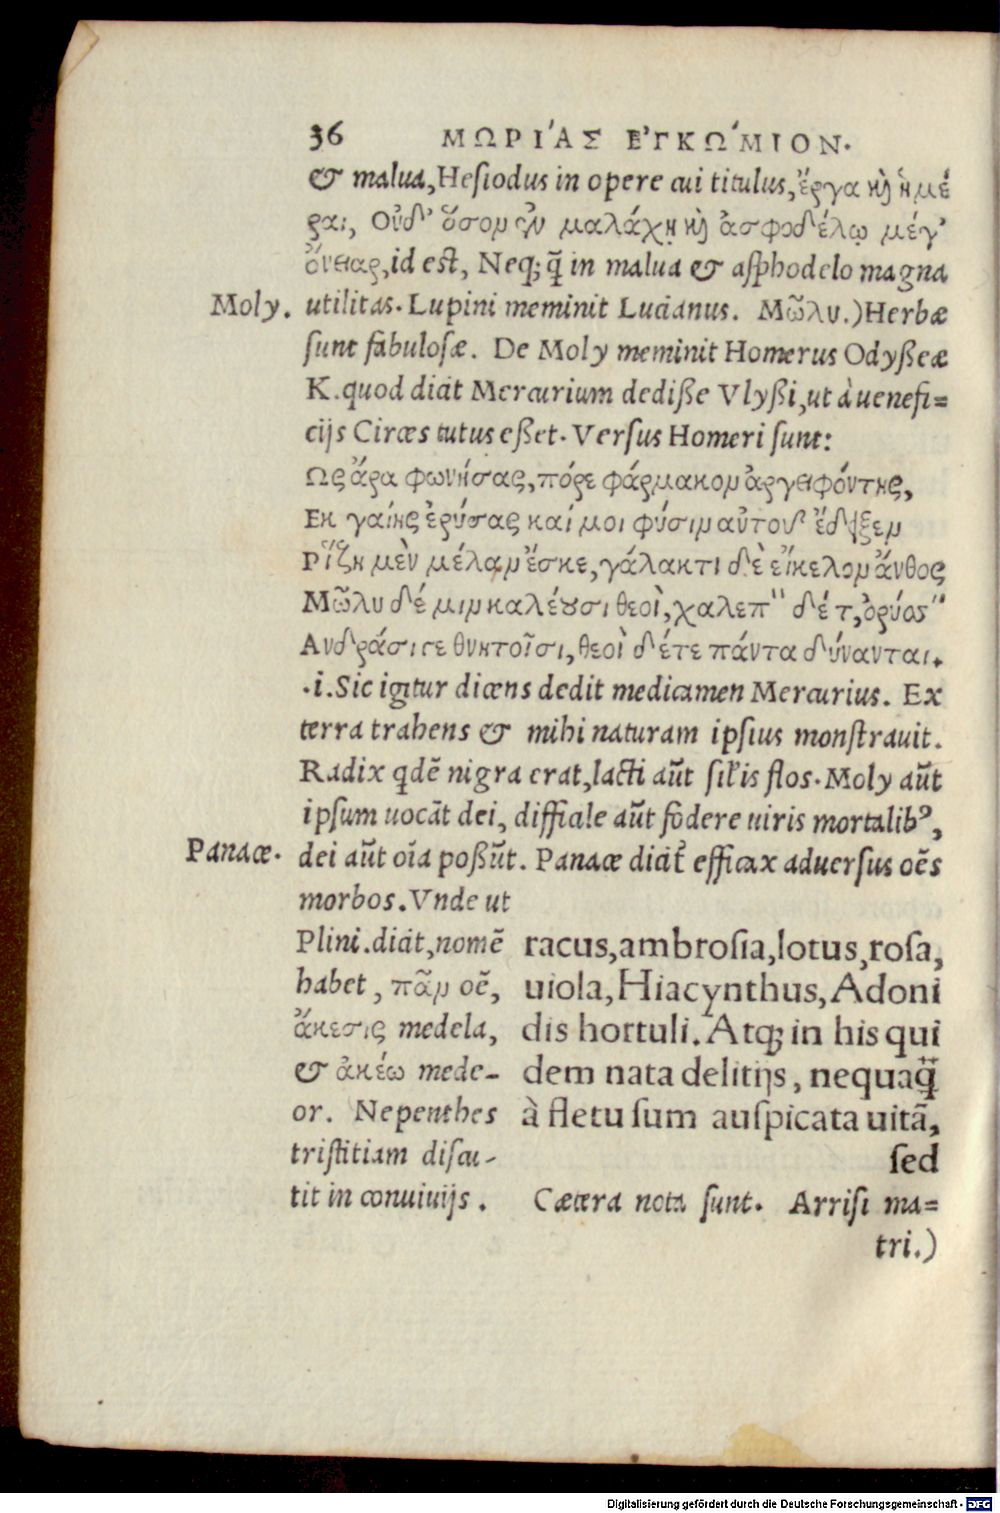 36 ΜΩΡΙ´ΑΣ Ε᾽ΓΚΩ´ΜΙΟΝ.
& malua, Hesiodus in opere cui titulus, ἔργα κὶ ἡμέ
ραι, Οὐδ᾽ ὅσον ἐν μαλάχῃ κὶ ἀσφοδέλῳ μέγ᾽
ὄνειαρ, id est, Neq; q̃ in malua & asphodelo magna
Moly. utilitas. Lupini meminit Lucianus. Μῶλυ.) Herbæ
sunt fabulosæ. De Moly meminit Homerus Odyßeæ
K. quod dicit Mercurium dediße Vlyßi, ut à uenefi=
cijs Circes tutus eßet. Versus Homeri sunt:
Ως ἄρα φωνήσας, πόρε φάρμακον ἀργειφόντης,
Εκ γαίης ἐρύσας καί μοι φύσιν αὐτοῦ ἔδειξεν
Ρίζῃ μὲν μέλαν ἔσκε, γάλακτι δὲ εἴκελον ἄνθος
Μῶλυ δέ μιν καλέουσι θεοὶ, χαλεπὸν δέ τ, ὀρύσσειν
Ανδράσι γε θνητοῖσι, θεοὶ δέ τε πάντα δύνανται.
.i. Sic igitur dicens dedit medicamen Mercurius. Ex
terra trahens & mihi naturam ipsius monstrauit.
Radix qdẽ nigra erat, lacti aũt sil'is flos. Moly aũt
ipsum uocãt dei, difficile aũt fodere uiris mortalibꝰ,
Panace. dei aũt oĩa poßũt. Panace dicit̃ efficax aduersus oẽs
morbos. Vnde ut
Plini. dicit, nomẽ
habet, πᾶν oẽ,
ἄκεσις medela,
& ἀκέω mede-
or. Nepenthes
tristitiam discu-
tit in conuiuijs.
racus, ambrosia, lotus, rosa,
uiola, Hiacynthus, Adoni
dis hortuli. Atq; in his qui
dem nata delitijs, nequaq̃
à fletu sum auspicata uitã,
sed
Cætera nota sunt. Arrisi ma=
tri.)
Digitalisierung gefördert durch die Deutsche Forschungsgemeinschaft - DFG